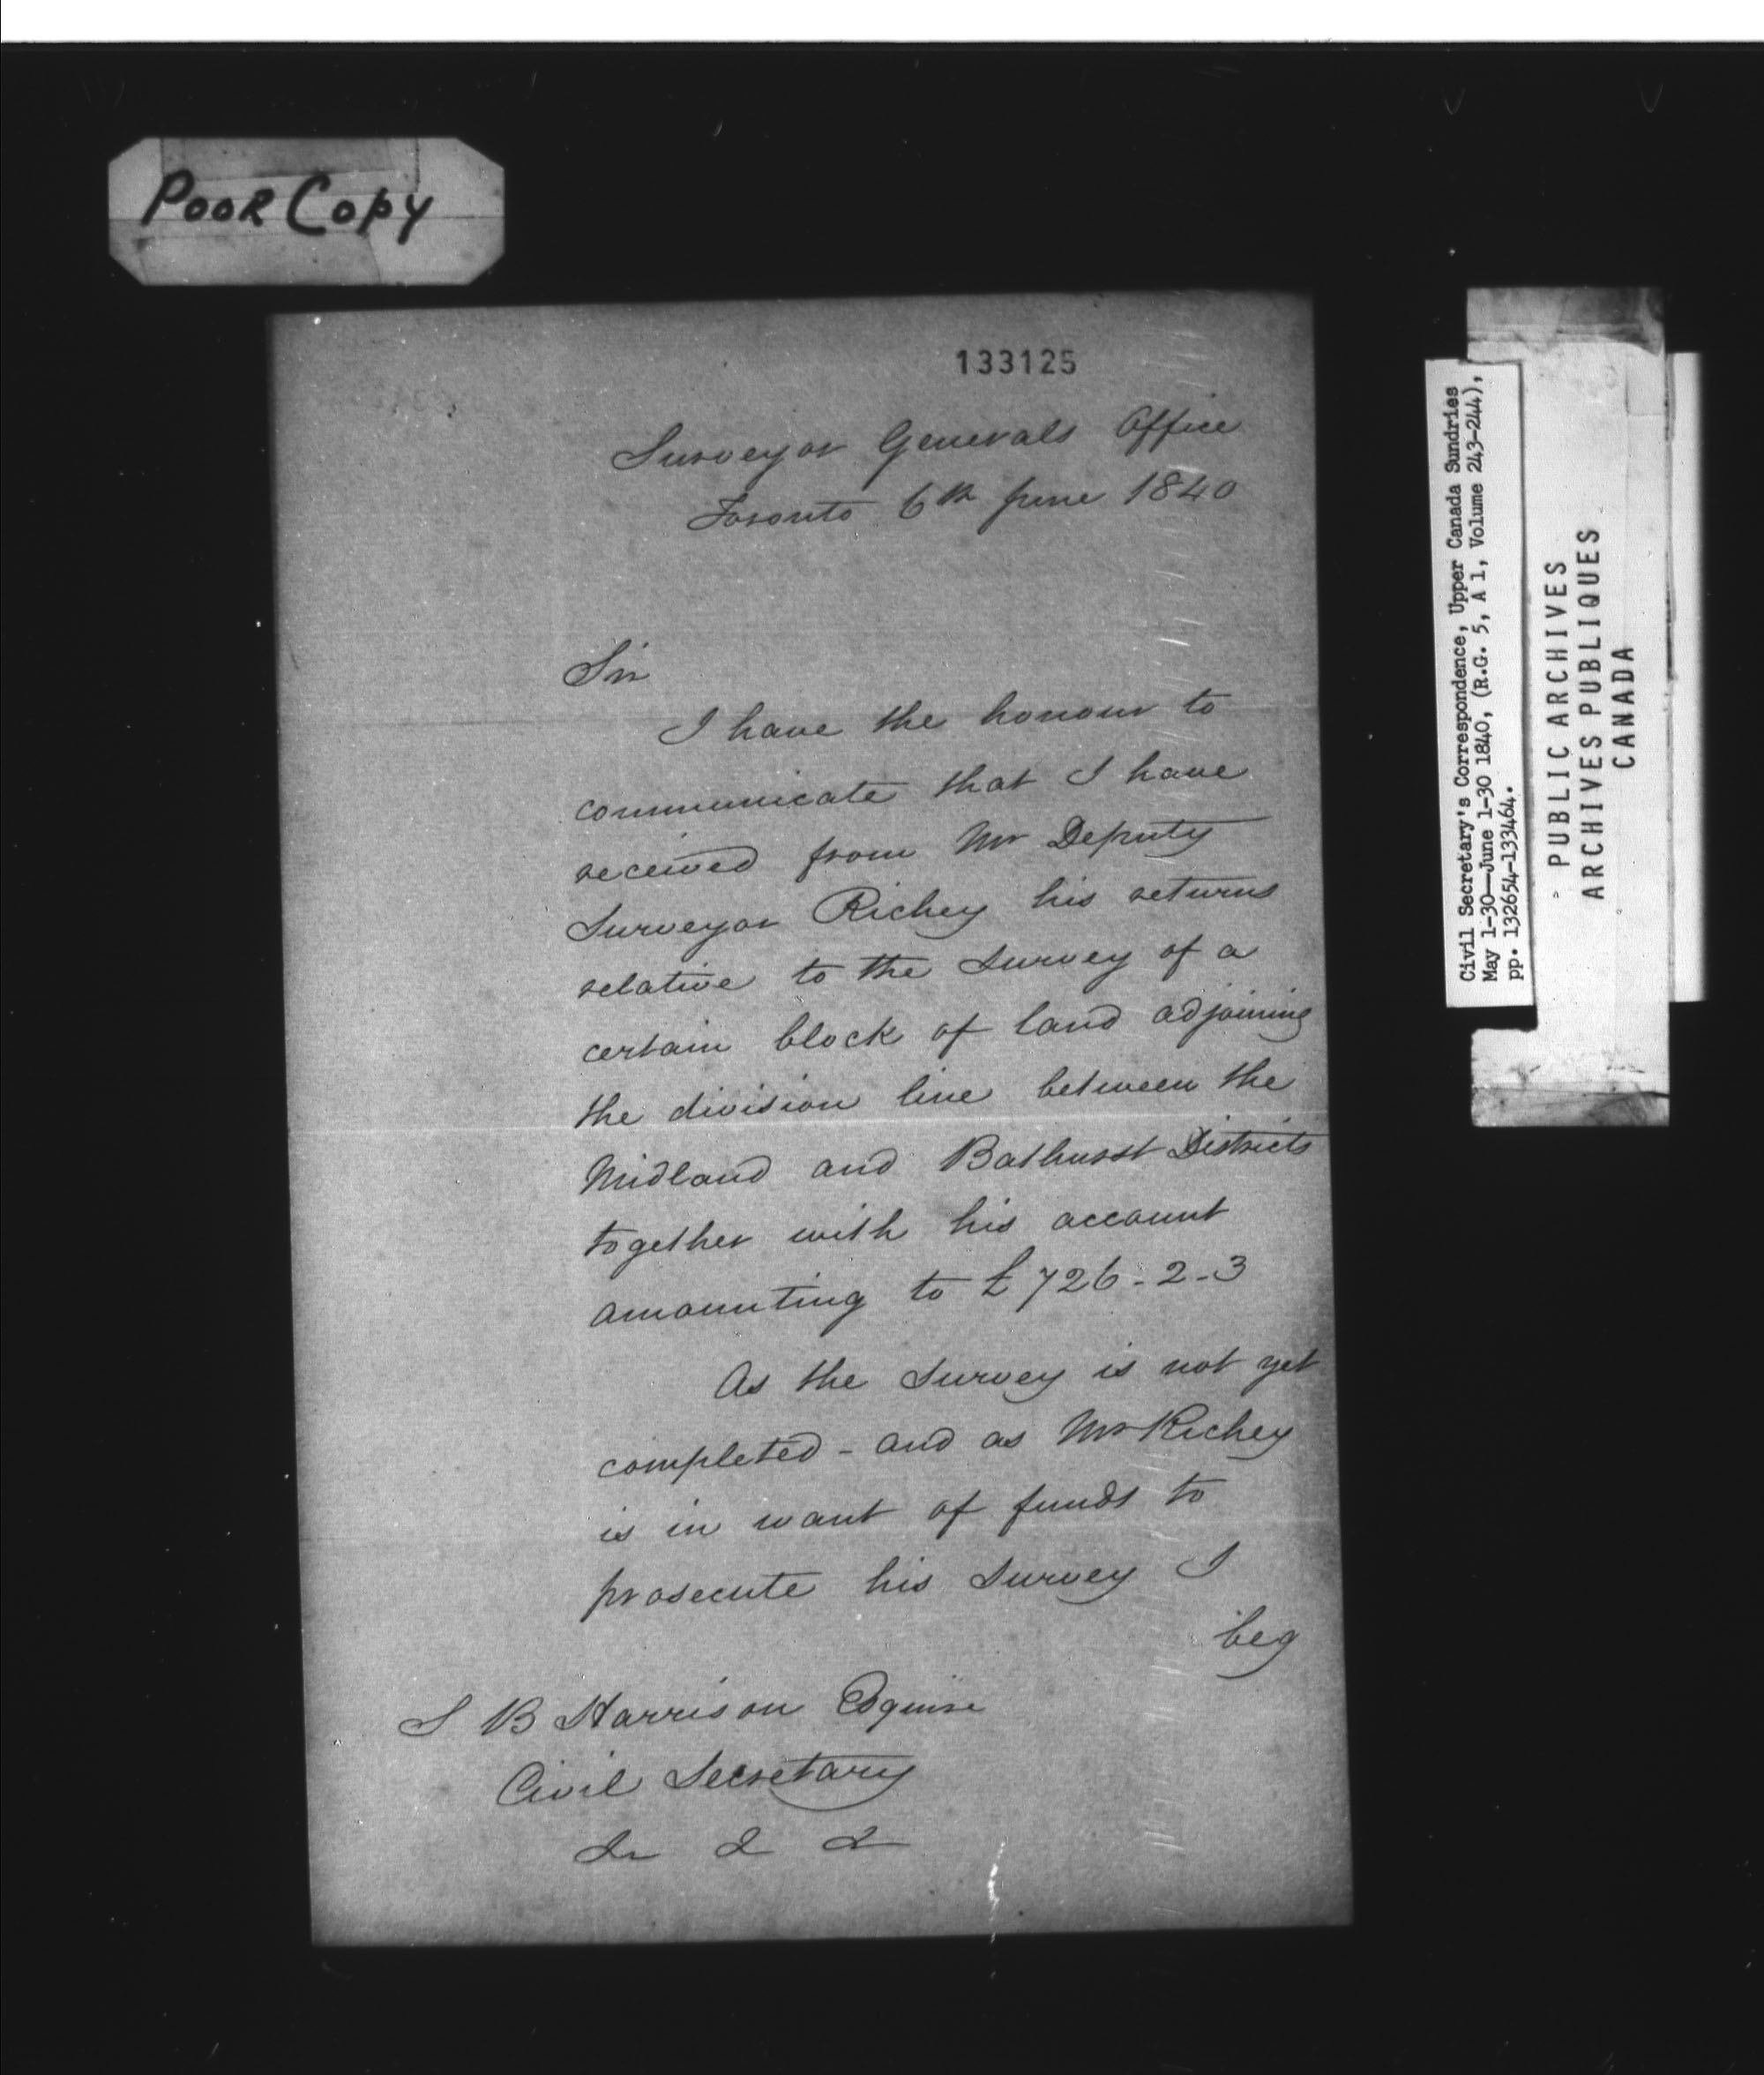 Poor Copy
133125
Surveyor Generals Office
Toronto 6th June 1840
Sir
I have the honour to
communicate that I have
received from Mr Deputy
Surveyor Richey his returns
relative to the Survey of a
certain block of land adjoining
the division line between the
Midland and Bathurst Districts
together with his account
amounting to £726-2-3
As the Survey is not yet
completed - and as Mr Richey
is in want of funds to
prosecute his Survey I
beg
S B Harrison Esquire
Civil Secretary
& & &
Civil Secretary's Correspondence, Upper Canada Sundries
May 1-30—June 1-30 1840, (R.G. 5, A 1, Volume 243-244),
pp. 132654-133464.
PUBLIC ARCHIVES
ARCHIVES PUBLIQUES
CANADA